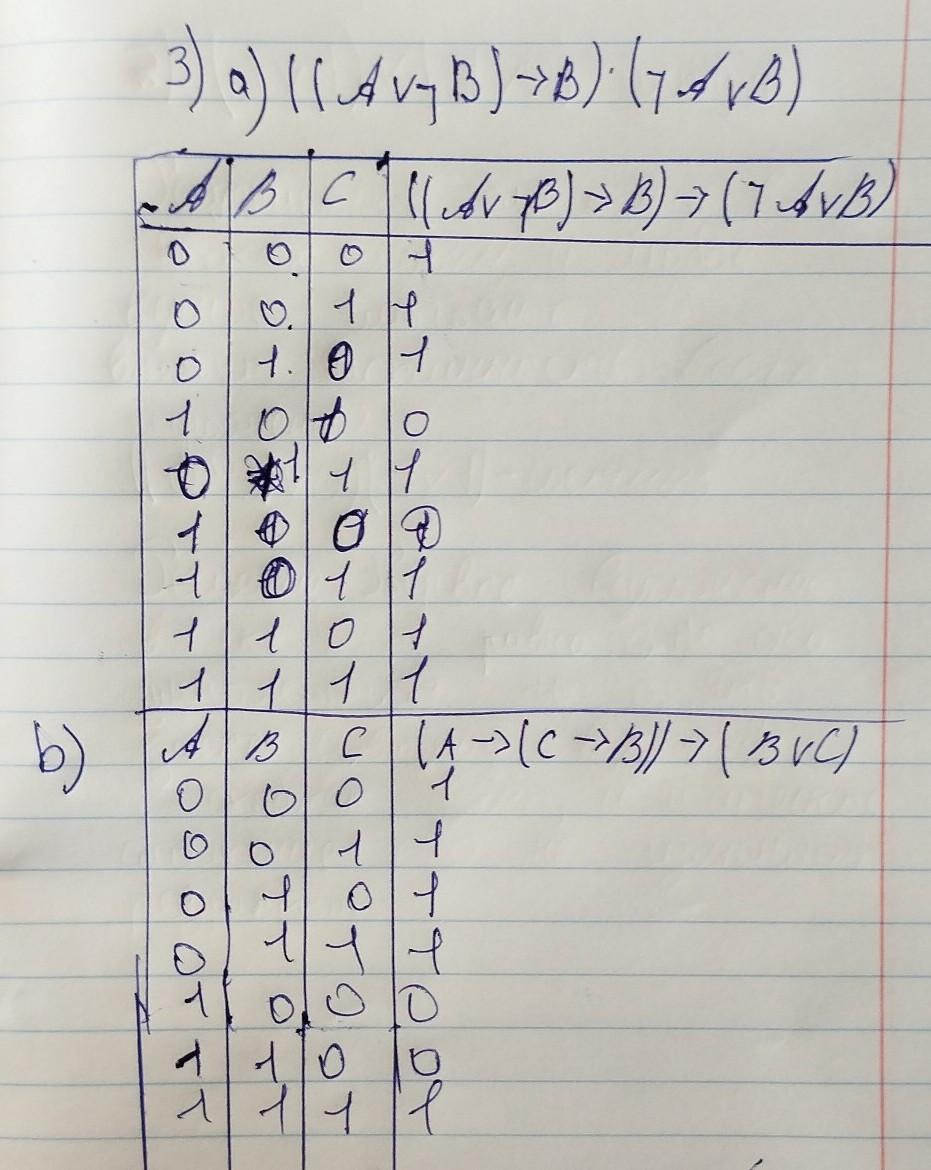 3) a) ((A∨¬B)→B)·(¬A∨B)
A B C ((A∨¬B)→B)→(¬A∨B)
0 0 0 1
0 0 1 1
0 1 0 1
1 0 0
0 1 1 1
1 0 0
1 0 1 1
1 1 0 1
1 1 1 1
b) A B C (A→(C→B))→(B∨C)
0 0 0 1
0 0 1 1
0 1 0 1
0 1 1 1
1 0 0 0
1 1 0 0
1 1 1 1